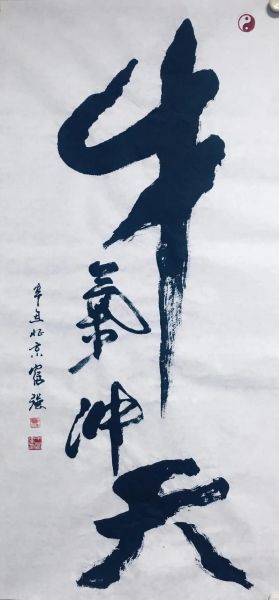 牛氣沖天
辛丑征京富强